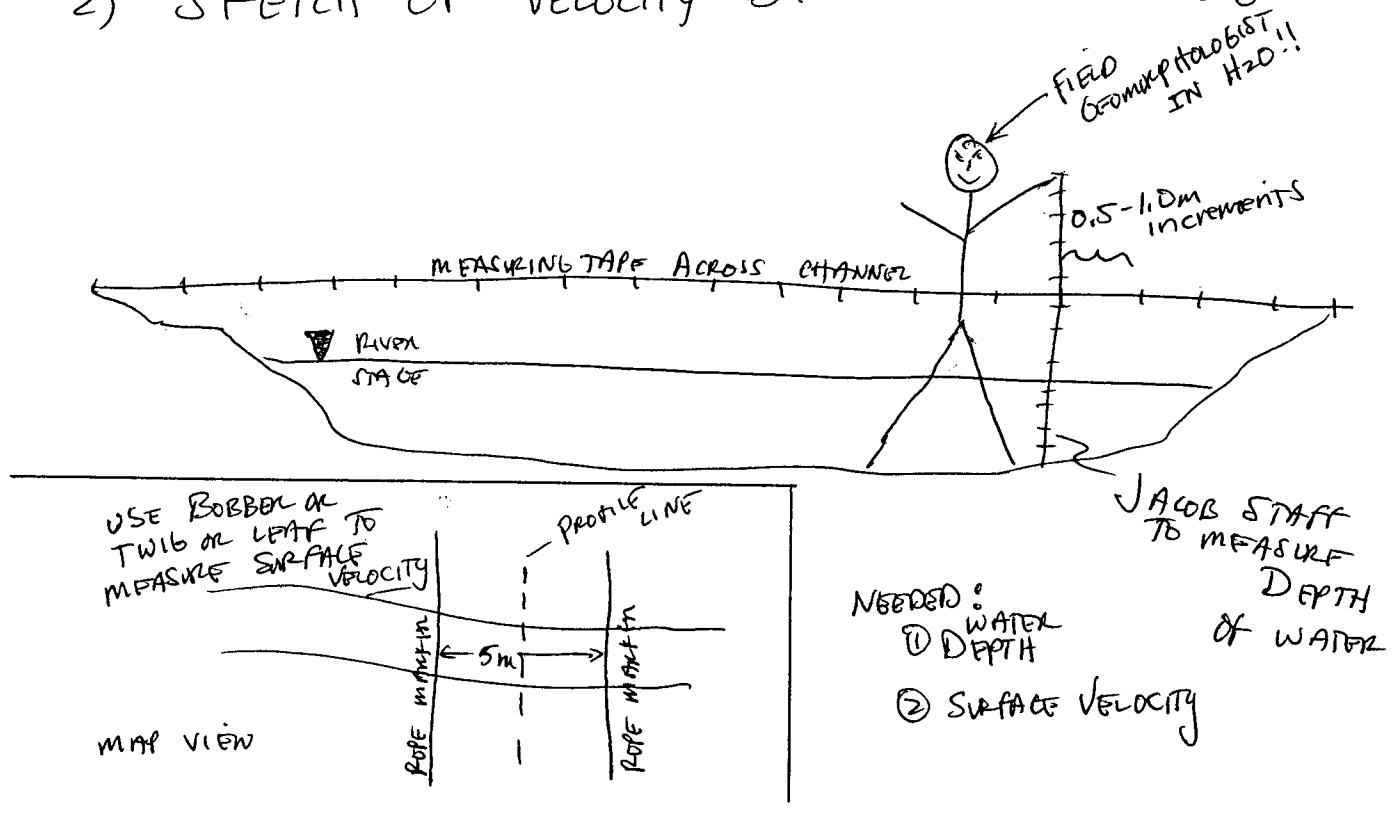 2) SKETCH OF VELOCITY
FIELD
GEOMORPHOLOGIST
IN H2O!!
0.5-1.0m
increments
MEASURING TAPE ACROSS CHANNEL
RIVER
STAGE
JACOB STAFF
TO MEASURE
DEPTH
OF WATER
USE BOBBER OR
TWIG OR LEAF TO
MEASURE SURFACE
VELOCITY
PROFILE
LINE
ROPE MARKIN
5m
ROPE MARKIN
MAP VIEW
NEEDED:
① WATER
DEPTH
② SURFACE VELOCITY